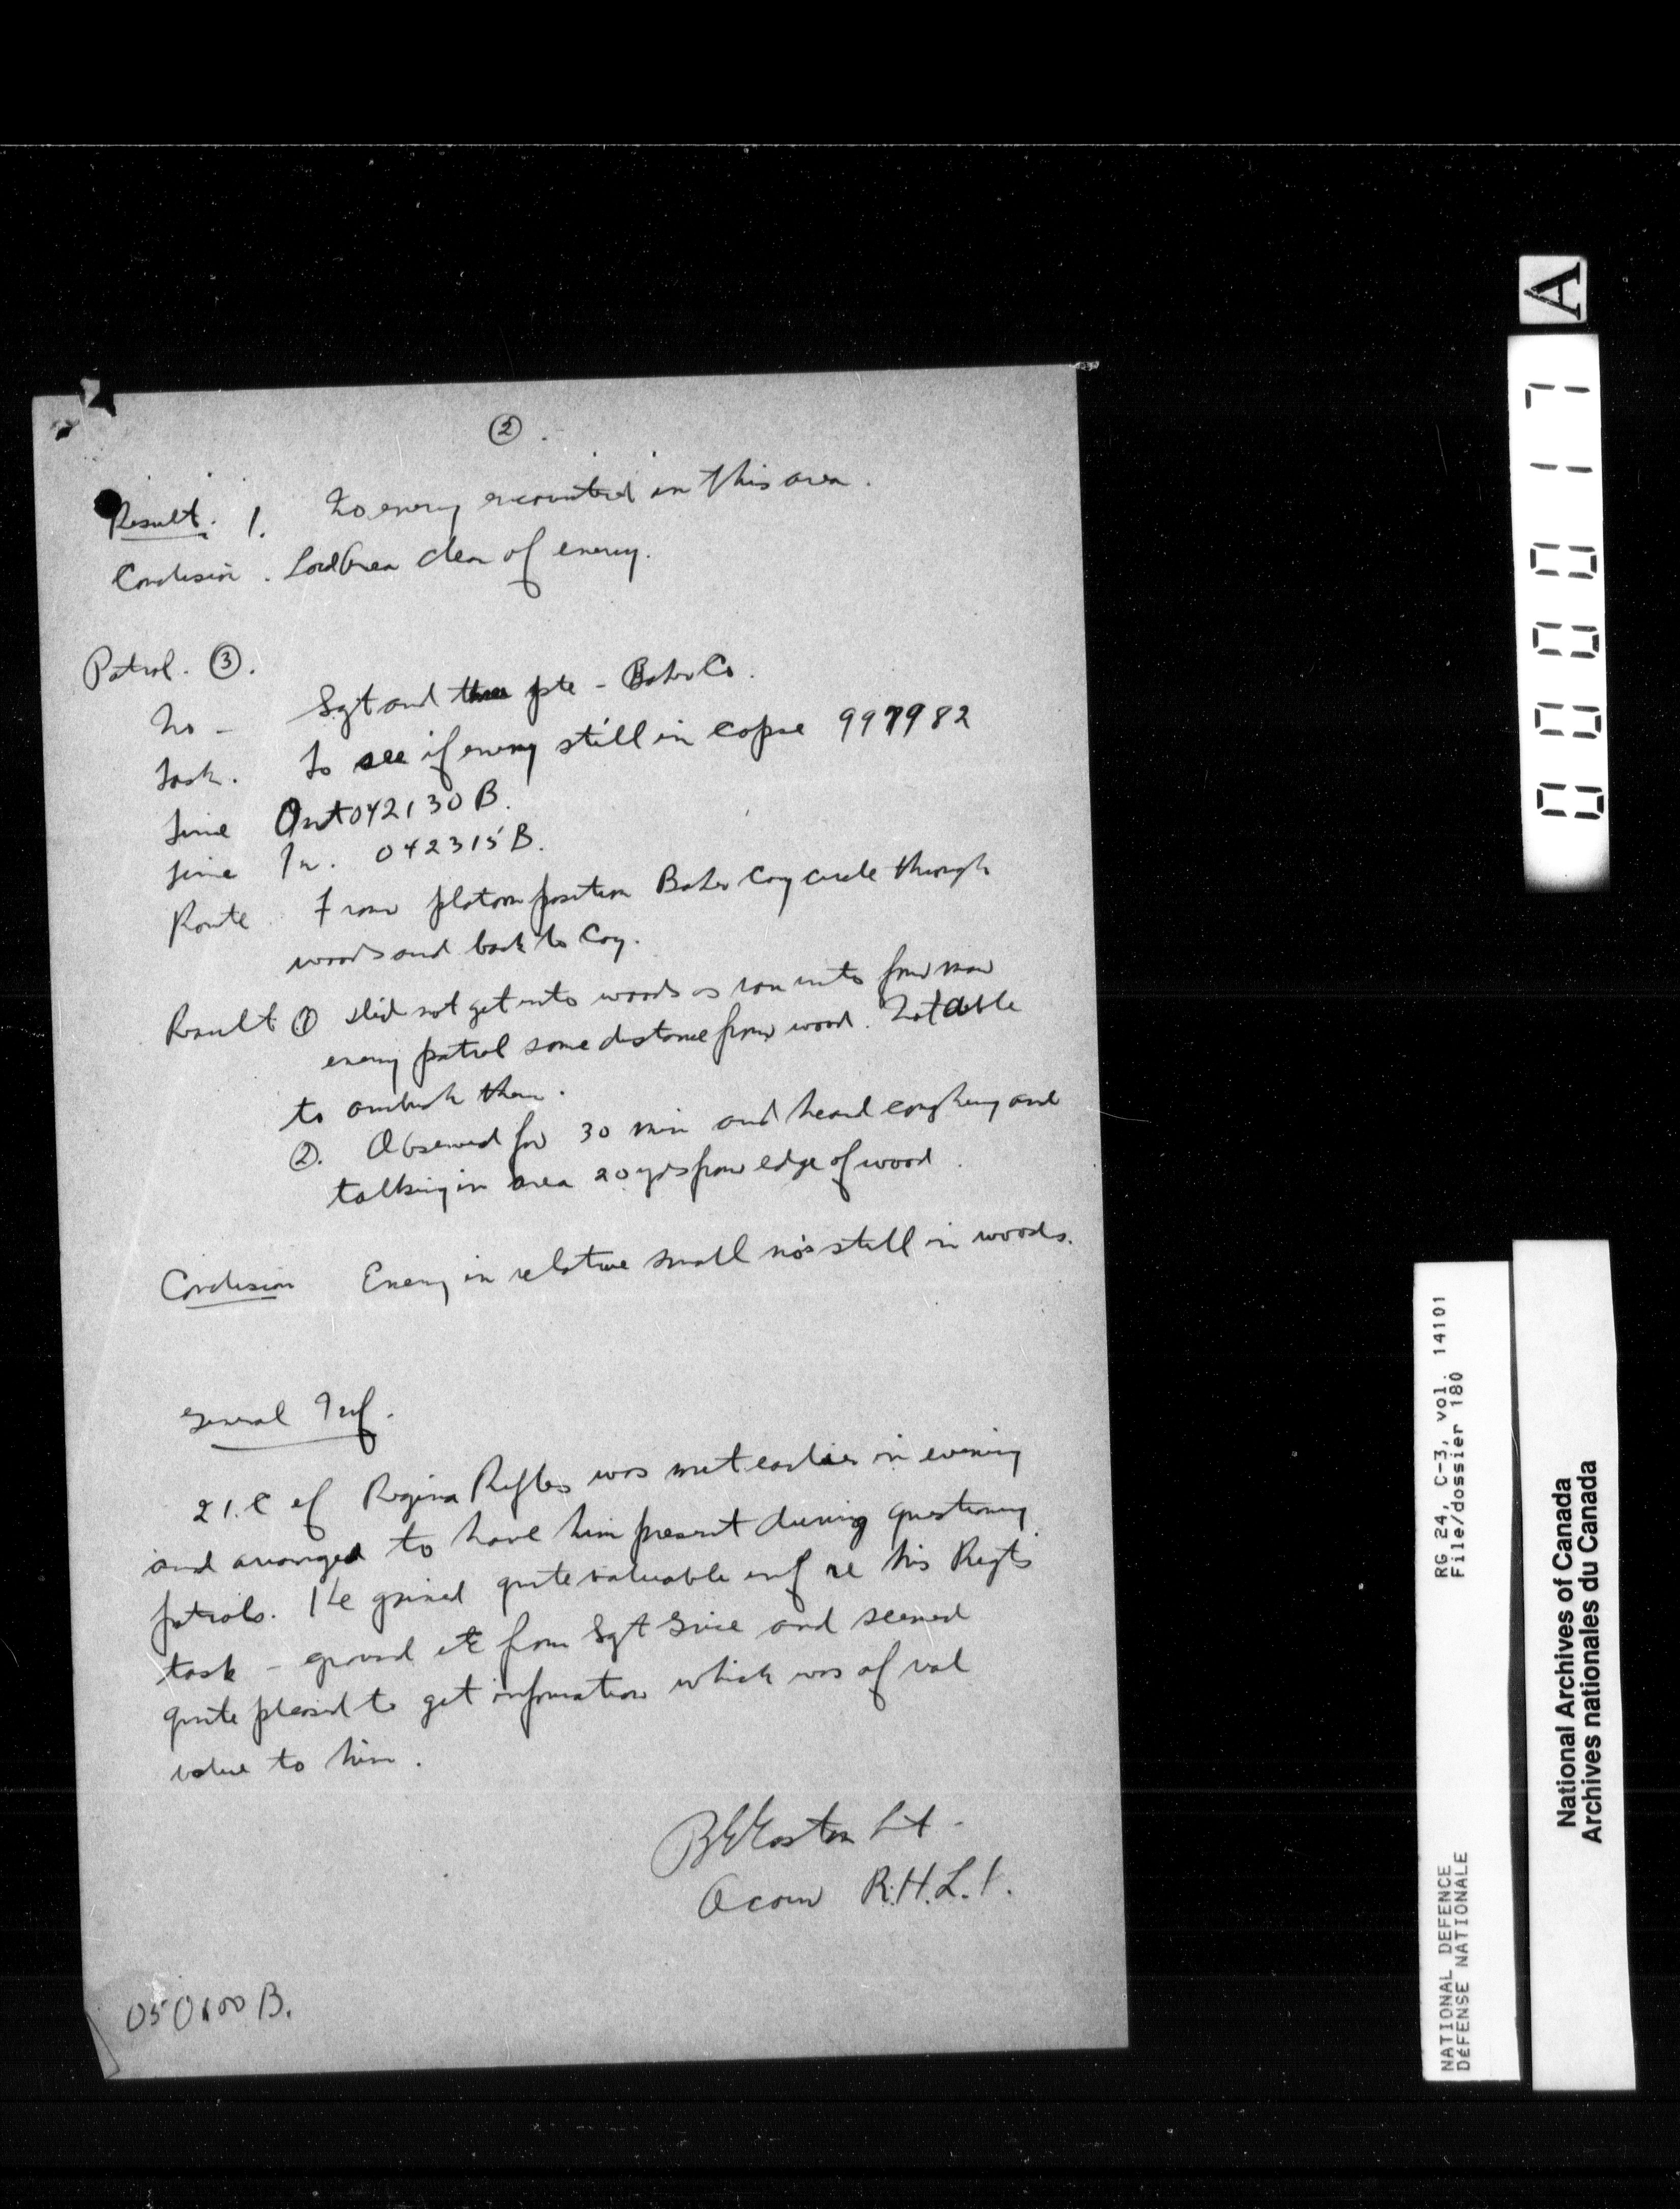 ②.
Result. 1. No enemy encountered in this area.
Conclusion. Area clear of enemy.
Patrol. ③.
No - Sgt and three pte - Baker Co.
Task. To see if enemy still in copse 997982
Time Out 042130 B.
Time In. 042315 B.
Route From platoon position Baker Coy circle through
woods and back to Coy.
Result ① Did not get into woods as ran into four man
enemy patrol some distance from wood. Not able
to ambush them.
②. Observed for 30 min and heard coughing and
talking in area 20 yds from edge of wood.
Conclusion Enemy in relative small no's still in woods.
General Inf.
2 I.C of Regina Rifles was met earlier in evening
and arranged to have him present during questioning
patrols. He gained quite valuable inf re his Regts
task - ground etc from Sgt and seemed
quite pleased to get information which was of val
value to him.
Lt.
R.H.L.I.
050100 B.
A
000017
RG 24, C-3, vol. 14101
File/dossier 180
NATIONAL DEFENCE
DÉFENSE NATIONALE
National Archives of Canada
Archives nationales du Canada